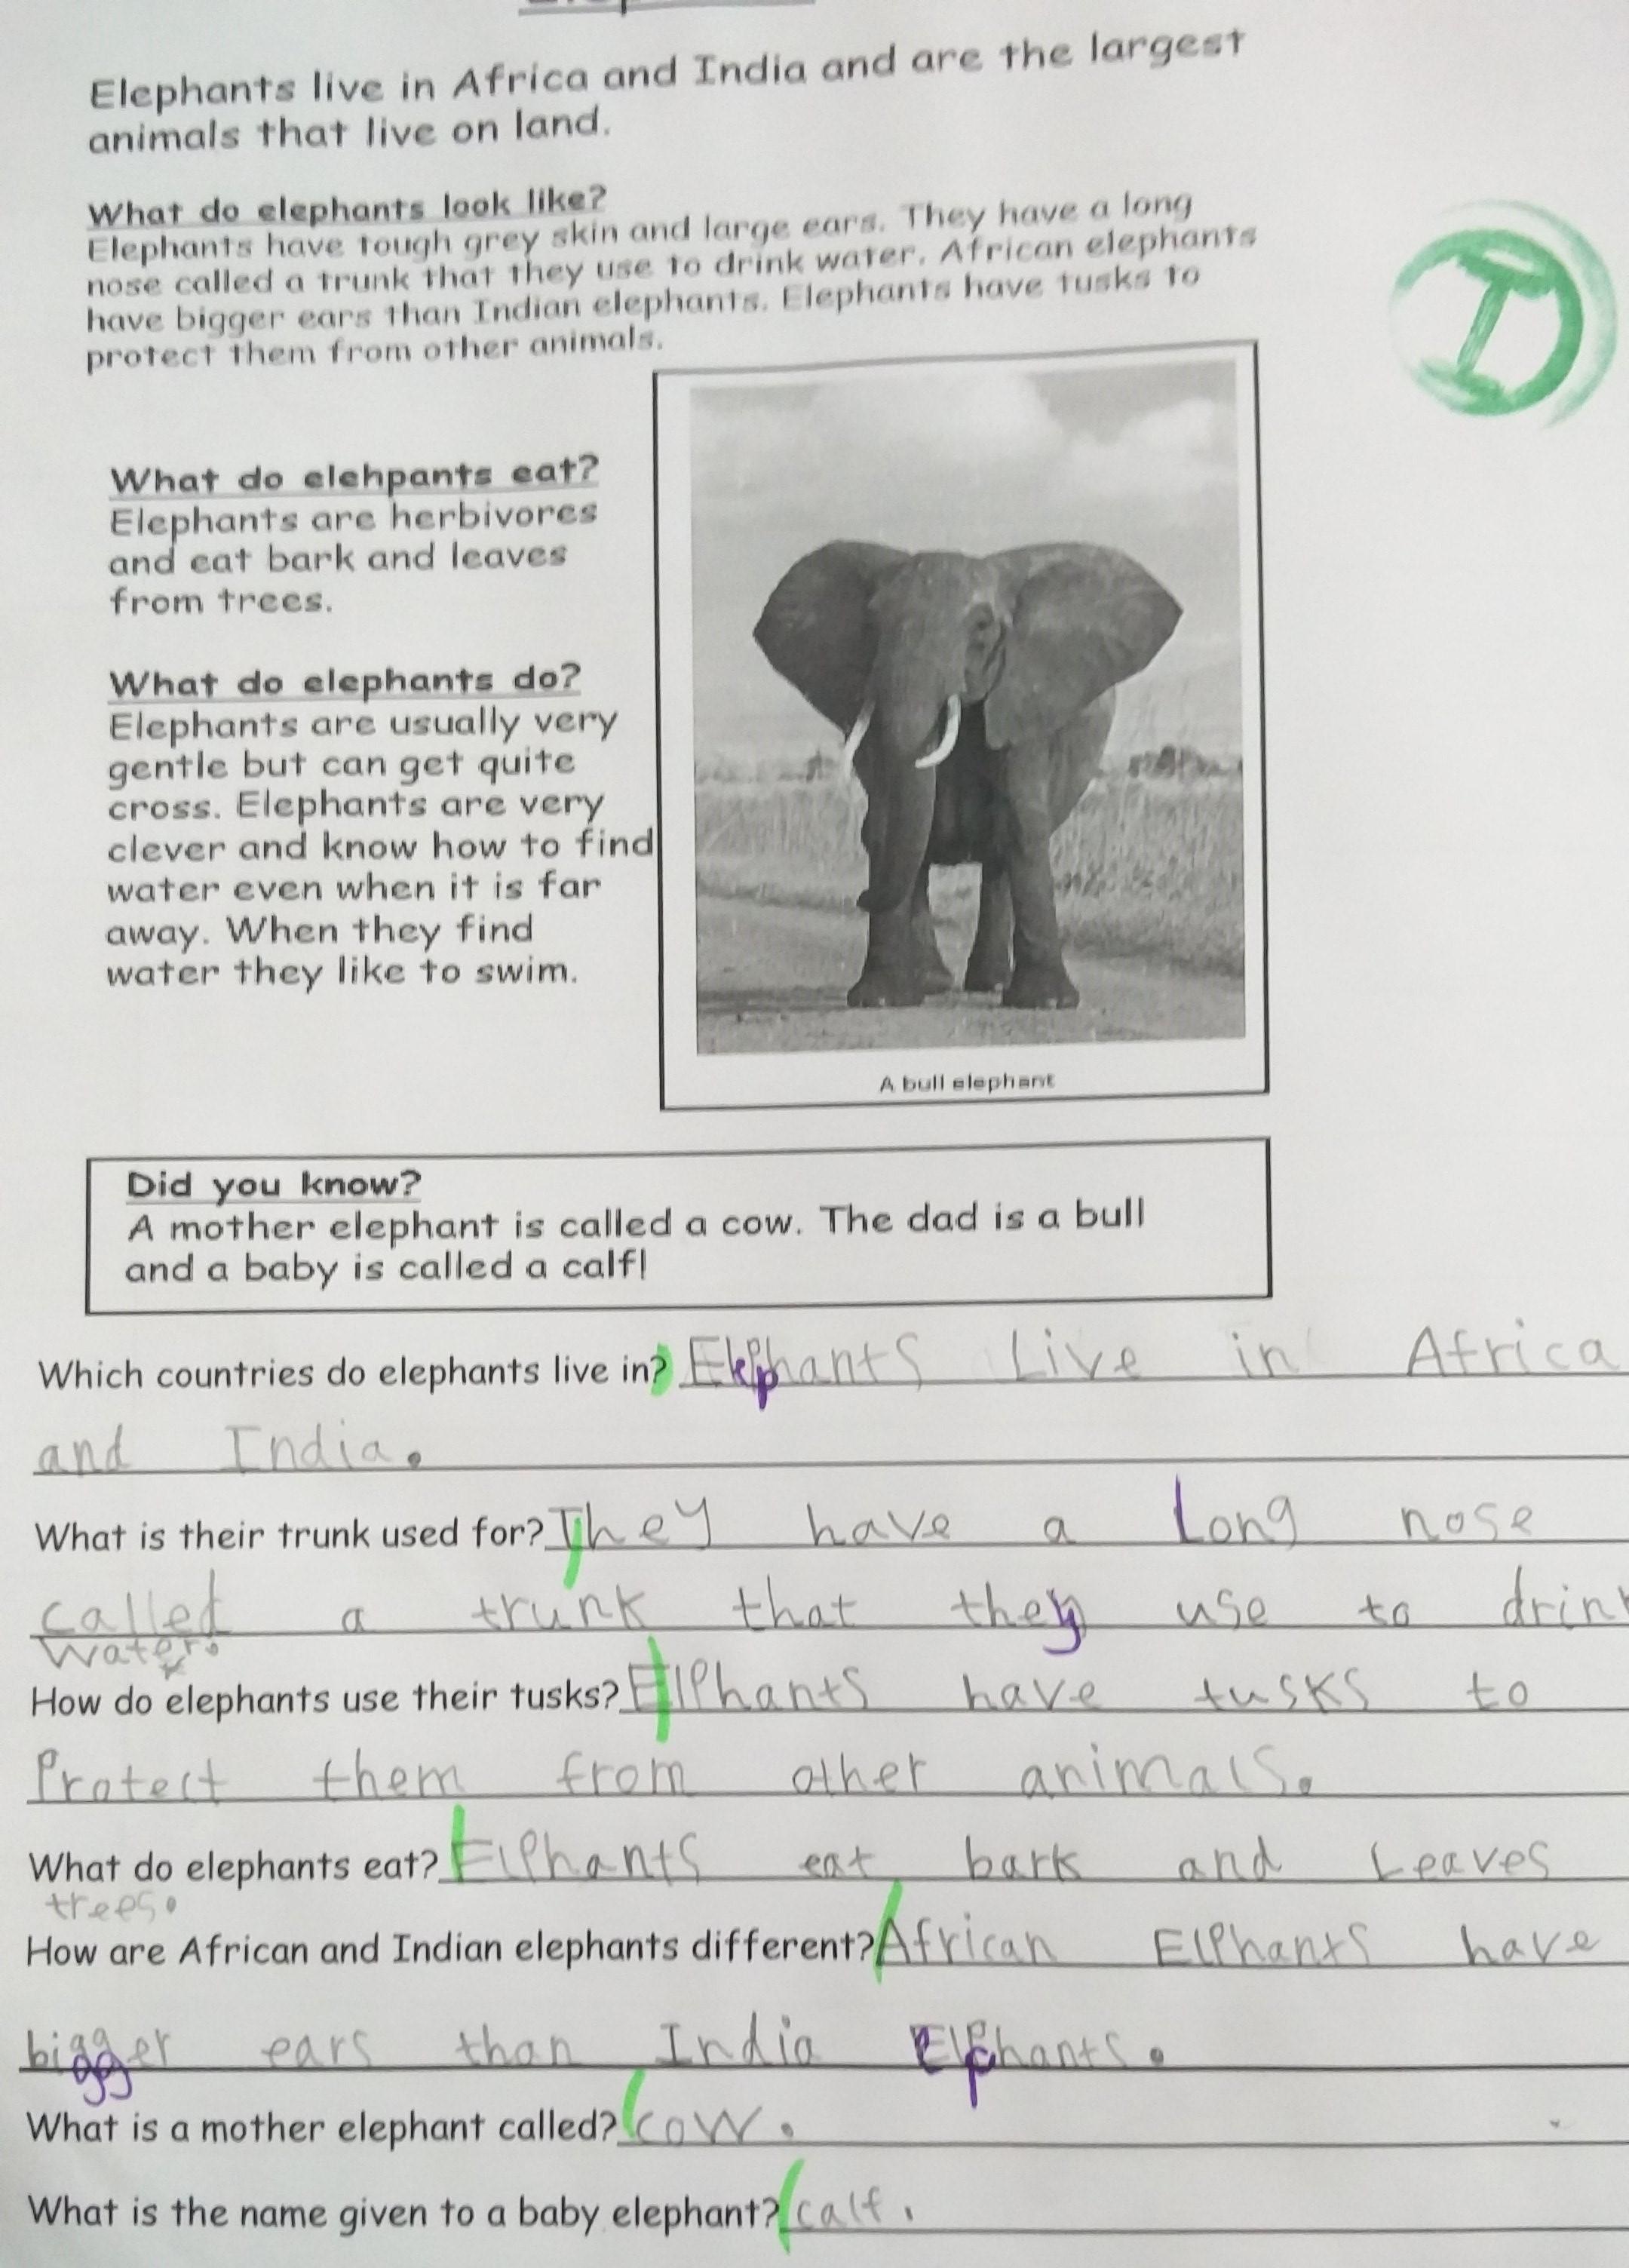 Elephants live in Africa and India and are the largest
animals that live on land.
What do elephants look like?
Elephants have tough grey skin and large ears. They have a long
nose called a trunk that they use to drink water. African elephants
have bigger ears than Indian elephants. Elephants have tusks to
protect them from other animals.
What do elehpants eat?
Elephants are herbivores
and eat bark and leaves
from trees.
What do elephants do?
Elephants are usually very
gentle but can get quite
cross. Elephants are very
clever and know how to find
water even when it is far
away. When they find
water they like to swim.
A bull elephant
I
Did you know?
A mother elephant is called a cow. The dad is a bull
and a baby is called a calf!
Which countries do elephants live in? Elephants Live in Africa
and India.
What is their trunk used for? They have a Long nose
called a trunk that they use to drink
water.
How do elephants use their tusks? Elphants have tusks to
Protect them from other animals.
What do elephants eat? Elphants eat bark and Leaves
trees.
How are African and Indian elephants different? African Elphants have
bigger ears than India Elphants.
What is a mother elephant called? cow.
What is the name given to a baby elephant? calf.